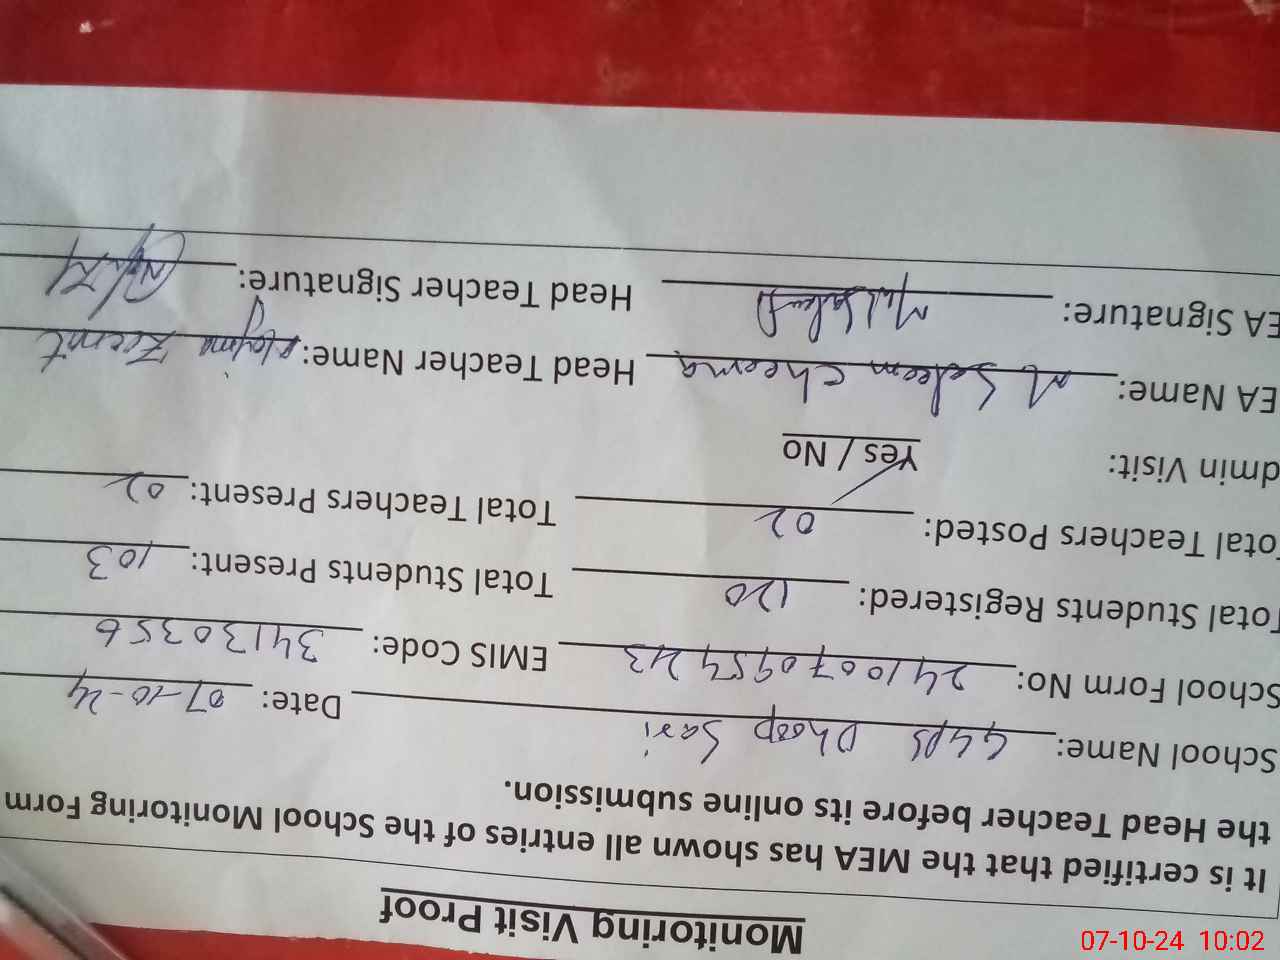 Monitoring Visit Proof
It is certified that the MEA has shown all entries of the School Monitoring Form
the Head Teacher before its online submission.
School Name: GGPS Dhoop Sari Date: 07-10-24
School Form No: 2410070954213 EMIS Code: 34130356
Total Students Registered: 120 Total Students Present: 103
otal Teachers Posted: 02 Total Teachers Present: 02
dmin Visit: Yes / No
EA Name: M Saleem Cheema Head Teacher Name: Zeenat
EA Signature: Head Teacher Signature:
07-10-24 10:02